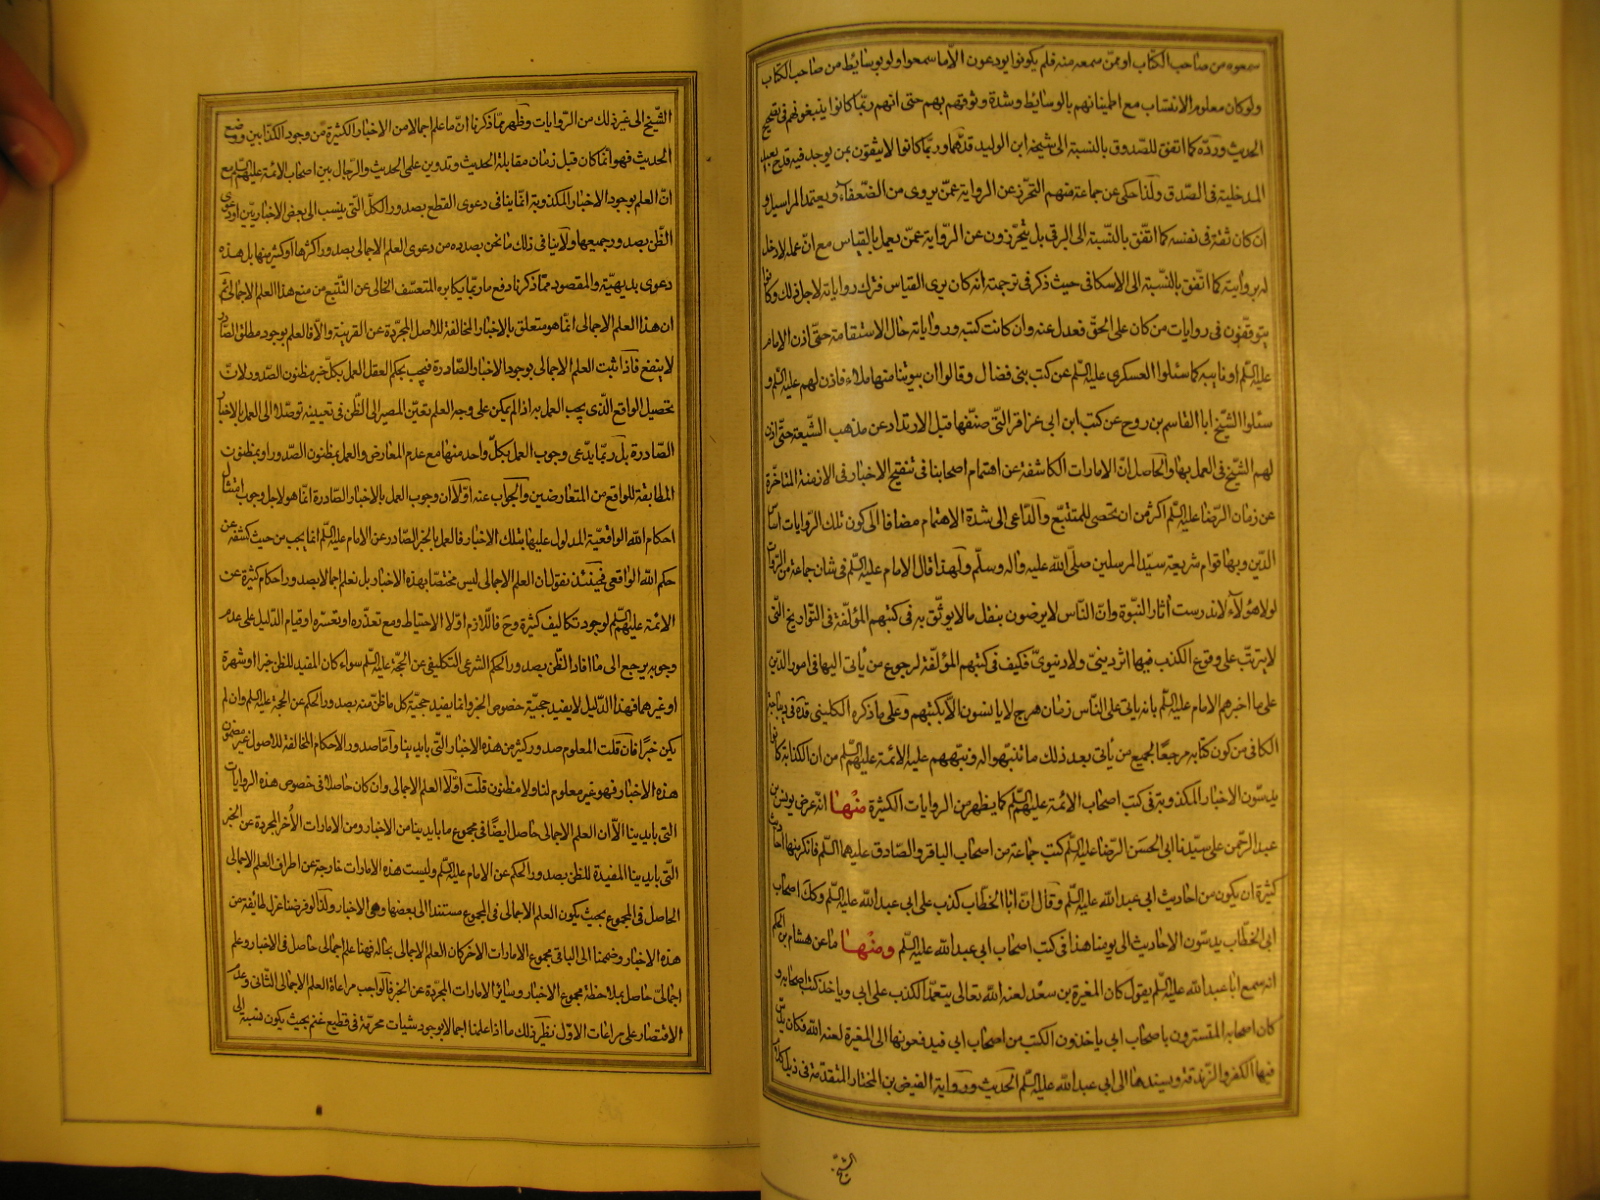 سمعوه من صاحب الكتاب او ممّن سمعه منه فلم يكونوا يودعون الّا ما سمعوا ولو بوسائط من صاحب الكتاب
ولو كان معلوم الانتساب مع اطمينانهم بالوسائط وشدة وثوقهم بهم حتى انهم ربّما كانوا يتبعونهم فى تصحيح
الحديث وردّه كما اتفق للصّدوق بالنسبة الى شيخه ابن الوليد قدّهما وربّما كانوا لا يثقون بمن يوجد فيه قدح بعيد
المدخلية فى الصّدق ولذا حكى عن جماعة منهم التحرّز عن الرواية عمّن يروى من الضّعفاء ويعتمد المراسيل و
ان كان ثقة فى نفسه كما اتّفق بالنّسبة الى البرقى بل يتحرّزون عن الرّواية عمّن يعمل بالقياس مع انّ عمله لا دخل
له بروايته كما اتّفق بالنّسبة الى الاسكافى حيث ذكر فى ترجمته انّه كان يرى القياس فترك رواياته لاجل ذلك وكانوا
يتوقّفون فى روايات من كان على الحقّ فعدل عنه وان كانت كتبه ورواياته حال الاستقامة حتّى اذن الامام
عليه السّلم او نايبه كما سئلوا العسكرى عليه السّلم عن كتب بنى فضال وقالوا ان بيوتنا منها ملاء فاذن لهم عليه السّلم و
سئلوا الشّيخ ابا القاسم بن روح عن كتب ابن ابى عزاقر الّتى صنّفها قبل الارتداد عن مذهب الشّيعة حتّى اذن
لهم الشّيخ فى العمل بها والحاصل انّ الامارات الكاشفة عن اهتمام اصحابنا فى تنقيح الاخبار فى الازمنة المتاخّرة
عن زمان الرّضا عليه السّلم اكثر من ان تحصى للمتتبّع والدّاعى الى شدة الاهتمام مضافا الى كون تلك الرّوايات اساس
الدّين وبها قوام شريعة سيّد المرسلين صلّى الله عليه واله وسلّم ولهذا قال الامام عليه السّلم فى شان جماعة من الرّواة
لولا هؤلاء لاندرست اثار النبّوة وانّ النّاس لا يرضون بنقل ما لا يوثّق به فى كتبهم المؤلّفة فى التّواريخ الّتى
لا يترتّب على وقوع الكذب فيها اثر دينىّ ولا دنيوىّ فكيف فى كتبهم المؤلّفة لرجوع من يأتى اليها فى امور الدّين
على ما اخبرهم الامام عليه السّلم بانه يأتى على النّاس زمان هرج لا يانسون الّا بكتبهم وعلى ما ذكره الكلينى قدّه فى ديباجة
الكافى من كون كتابه مرجعًا لجميع من يأتى بعد ذلك ما تنبّهوا له ونبّههم عليه الائمة عليهم السّلم من ان الكذابة كانوا
يدسّون الاخبار المكذوبة فى كتب اصحاب الائمة عليهم السّلم كما يظهر من الروايات الكثيرة منها انّه عرض يونس بن
عبد الرّحمن على سيّدنا ابى الحسن الرّضا عليه السّلم كتب جماعة من اصحاب الباقر والصّادق عليهما السّلم فانكر منها احاديث
كثيرة ان يكون من احاديث ابى عبد الله عليه السّلم وقال انّ ابا الخطّاب كذب على ابى عبد الله عليه السّلم وكك اصحاب
ابى الخطّاب يدسّون الاحاديث الى يومنا هذا فى كتب اصحاب ابى عبد الله عليه السّلم ومنها ما عن هشام بن الحكم
انّه سمع ابا عبد الله عليه السّلم يقول كان المغيرة بن سعد لعنه الله تعالى يتعمّد الكذب على ابى وياخذ كتب اصحابه و
كان اصحابه المتستّرون باصحاب ابى ياخذون الكتب من اصحاب ابى فيدفعونها الى المغيرة لعنه الله فكان يدسّ
فيها الكفر والزّندقة ويسندها الى ابى عبد الله عليه السّلم الحديث ورواية الفيض بن المختار المتقدّمة فى ذيل كلام
الشّيخ
الشّيخ الى غير ذلك من الرّوايات وظهر ممّا ذكرنا انّ ما علم اجمالا من الاخبار الكثيرة من وجود الكذّابين ووضع
الحديث فهو انّما كان قبل زمان مقابلة الحديث وتدوين علمى الحديث والرّجال بين اصحاب الائمة عليهم السّلم مع
انّ العلم بوجود الاخبار المكذوبة انّما ينافى دعوى القطع بصدور الكلّ الّتى ينسب الى بعض الاخباريّين او دعوى
الظّن بصدور جميعها ولا ينافى ذلك ما نحن بصدده من دعوى العلم الاجمالى بصدور اكثرها او كثير منها بل هذه
دعوى بديهيّة والمقصود ممّا ذكرنا دفع ما ربّما يكابره المتعسّف الخالى عن التّتبّع من منع هذا العلم الاجمالى ثمّ
ان هذا العلم الاجمالى انّما هو متعلق بالاخبار المخالفة للاصل المجرّدة عن القرينة والّا فالعلم بوجود مطلق الصّادر
لا ينفع فاذا ثبت العلم الاجمالى بوجود الاخبار الصّادرة فيجب بحكم العقل العمل بكلّ خبر مظنون الصّدور لانّ
تحصيل الواقع الّذى يجب العمل به اذا لم يمكن على وجه العلم تعيّن المصير الى الظّن فى تعيينه توصّلا الى العمل بالاخبار
الصّادرة بل ربّما يدّعى وجوب العمل بكلّ واحد منها مع عدم المعارض والعمل بمظنون الصّدور او بمظنون
المطابقة للواقع من المتعارضين والجواب عنه اوّلا ان وجوب العمل بالاخبار الصّادرة انّما هو لاجل وجوب امتثال
احكام الله الواقعيّة المدلول عليها بتلك الاخبار فالعمل بالخبر الصّادر عن الامام عليه السّلم انّما يجب من حيث كشفه عن
حكم الله الواقعى فحينئذ نقول ان العلم الاجمالى ليس مختصّا بهذه الاخبار بل نعلم اجمالا بصدور احكام كثيرة عن
الائمة عليهم السّلم لوجود تكاليف كثيرة وح فاللازم اوّلا الاحتياط ومع تعذّره او تعسّره او قيام الدّليل على عدم
وجوبه يرجع الى ما افاد الظّن بصدور الحكم الشرعى التكليفى عن الحجّة عليه السّلم سواء كان المفيد للظن خبرا او شهرة
او غيرهما فهذا الدّليل لا يفيد حجيّة خصوص الخبر وانما يفيد حجيّة كل ما ظنّ منه بصدور الحكم عن الحجة عليه السّلم وان لم
يكن خبرًا فان قلت المعلوم صدور كثير من هذه الاخبار الّتى بايدينا وامّا صدور الاحكام المخالفة للاصول غير مضمون
هذه الاخبار فهو غير معلوم لنا ولا مظنون قلت اوّلا العلم الاجمالى وان كان حاصلا فى خصوص هذه الروايات
التى بايدينا الّا ان العلم الاجمالى حاصل ايضًا فى مجموع ما بايدينا من الاخبار ومن الامارات الأخر المجردة عن الخبر
الّتى بايدينا المفيدة للظن بصدور الحكم عن الامام عليه السّلم وليست هذه الامارات خارجة عن اطراف العلم الاجمالى
الحاصل فى المجموع بحيث يكون العلم الاجمالى فى المجموع مستندا الى بعضها وهى الاخبار ولذا لو فرضنا عزل طائفة من
هذه الاخبار وضممنا الى الباقى مجموع الامارات الاخر كان العلم الاجمالى بحاله فهنا علم اجمالى حاصل فى الاخبار وعلم
اجمالىّ حاصل بملاحظة مجموع الاخبار وسائر الامارات المجرّدة عن الخبر فالواجب مراعاة العلم الاجمالى الثّانى وعدم
الاقتصار على مراعات الاوّل نظير ذلك ما اذا علمنا اجمالا بوجود شيات محرمّة فى قطيع غنم بحيث يكون نسبة الى